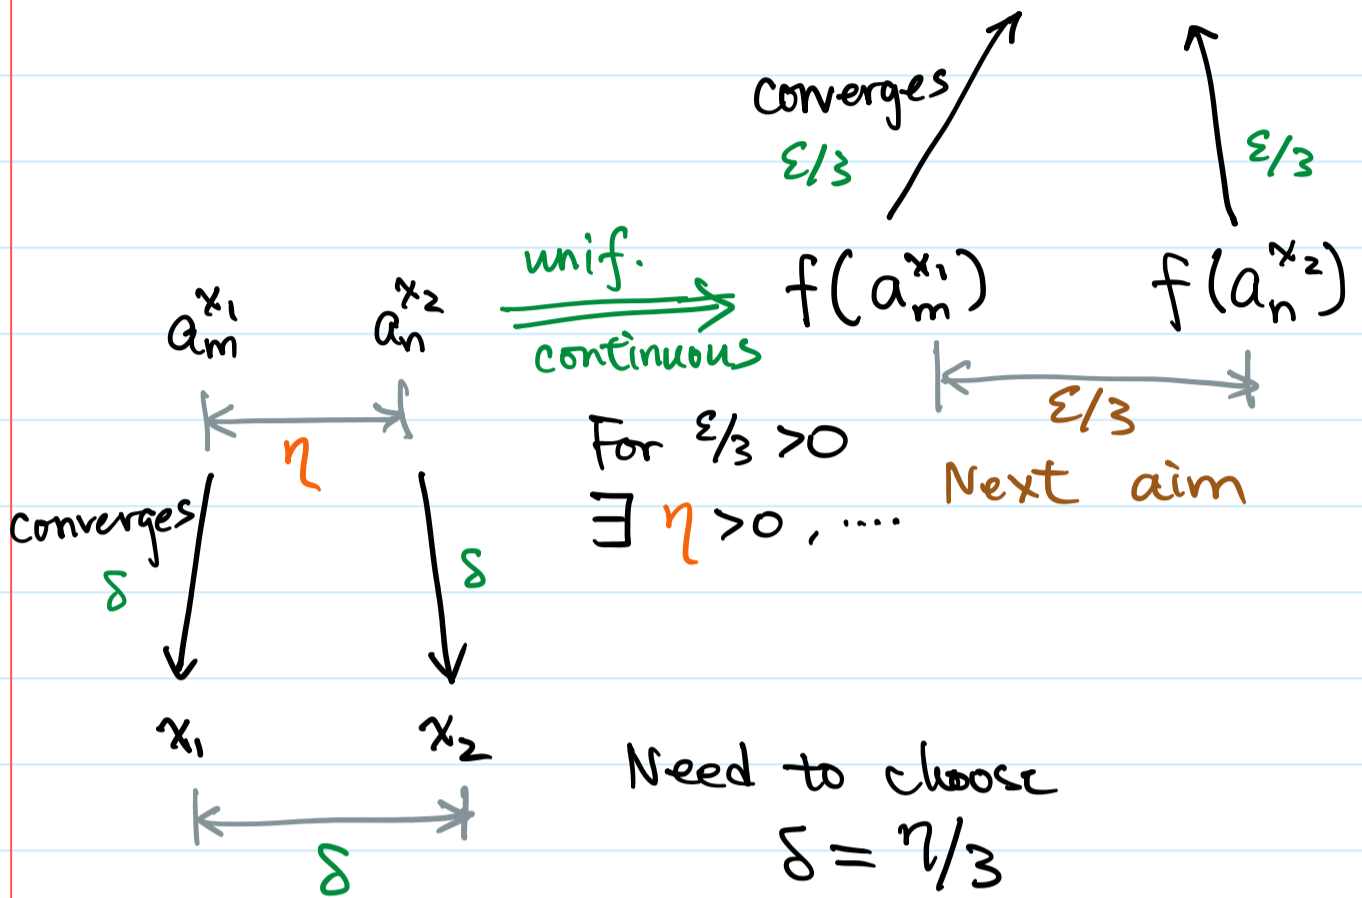 converges
ε/3
ε/3
unif.
continuous
f(a_m^{x_1})
f(a_n^{x_2})
a_m^{x_1}
a_n^{x_2}
η
ε/3
Next aim
For ε/3 >0
∃ η >0, ....
converges
δ
δ
x_1
x_2
δ
Need to choose
δ = η/3